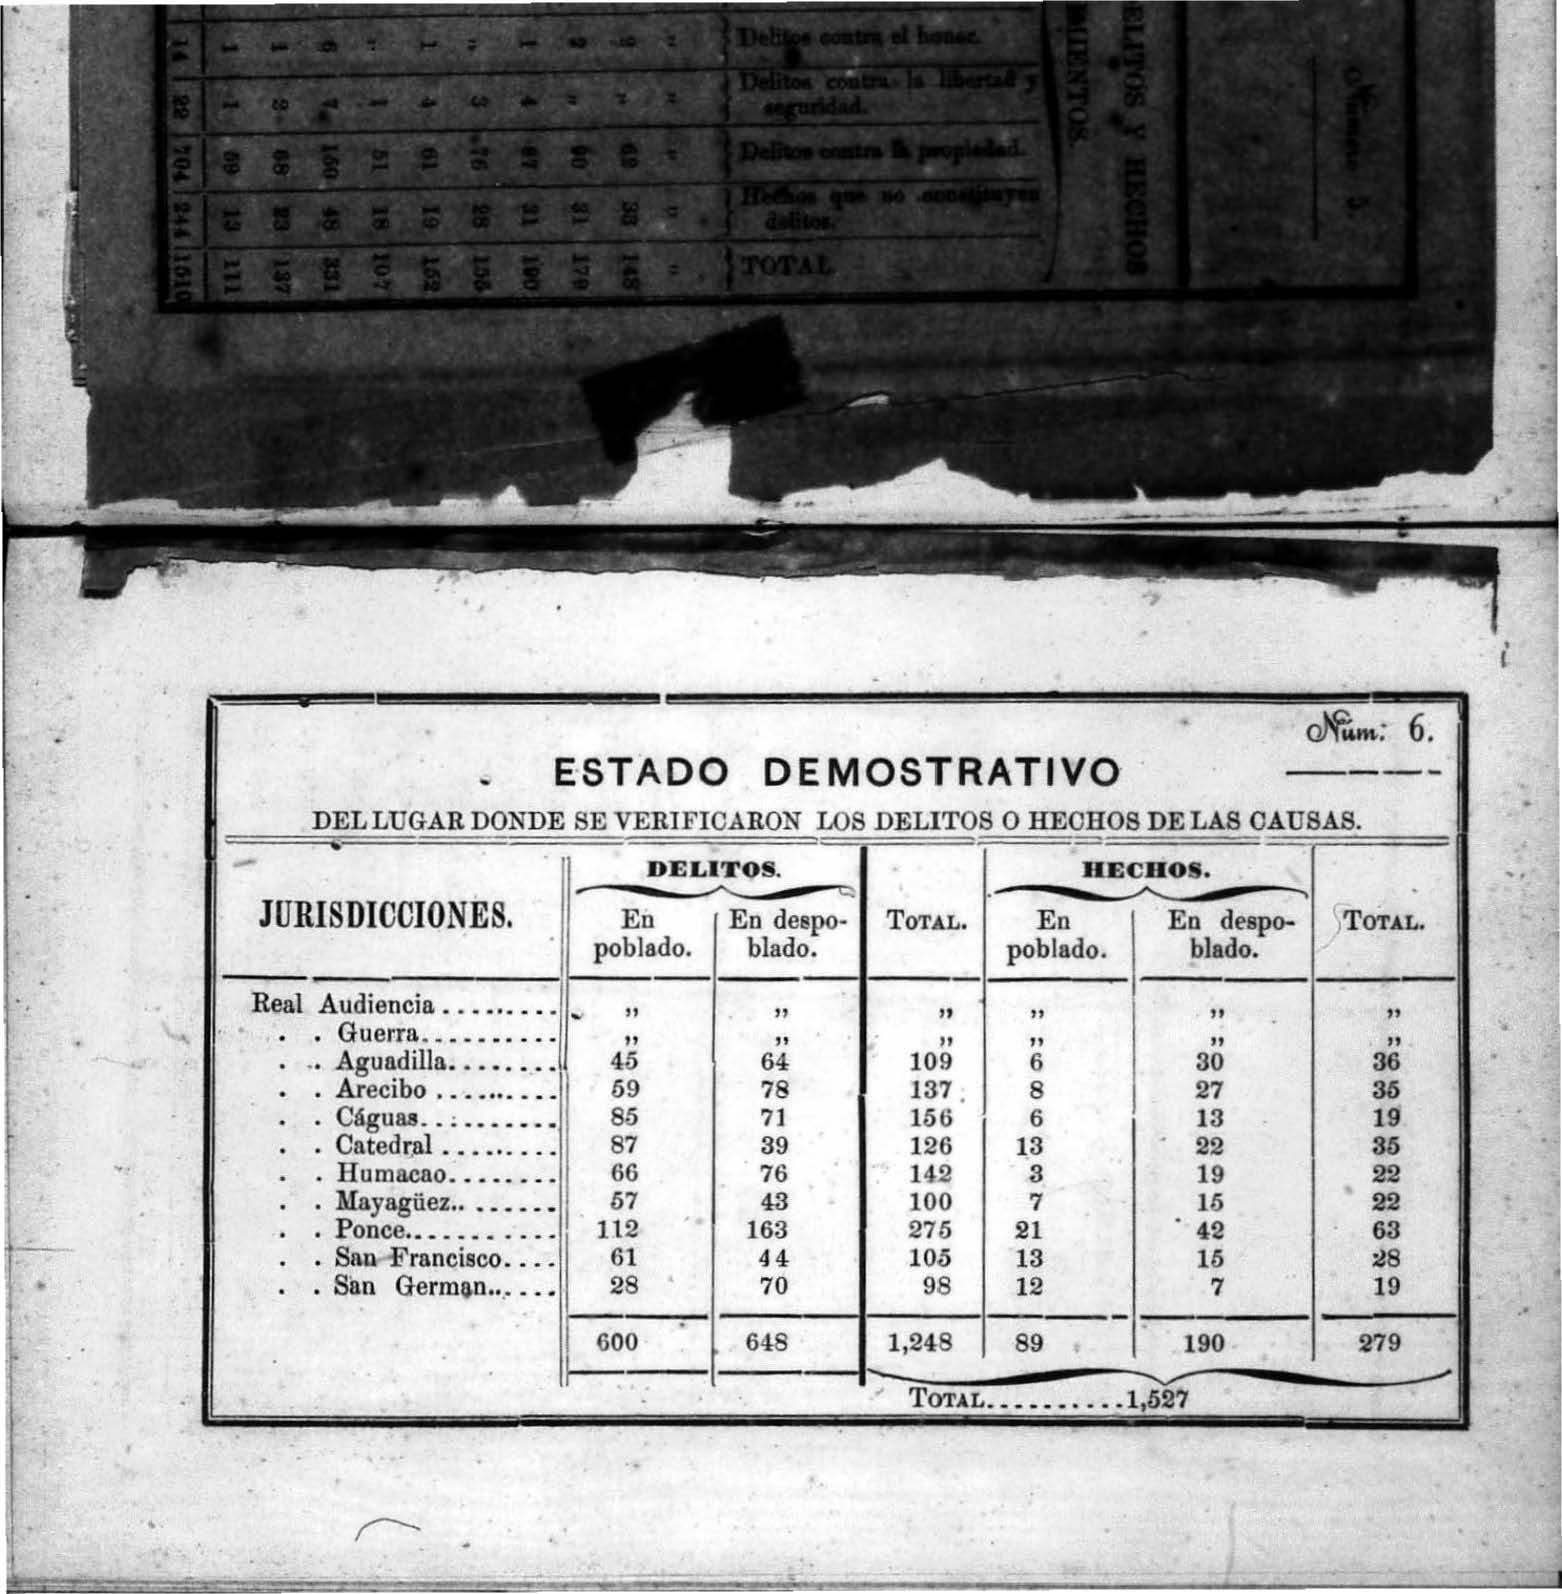 14 1 1 6 „ 1 „ 1 2 2 „ Delitos contra el honor.
22 1 2 7 1 4 3 4 „ „ „ Delitos contra la libertad y
seguridad.
704 59 68 150 51 61 76 87 90 62 „ Delitos contra la propiedad.
244 13 23 48 18 19 28 31 31 33 „ Hechos que no constituyen
delitos.
1510 111 137 331 107 152 155 190 179 148 „ TOTAL
ELITOS Y HECHOS
MIENTOS.
Número 5.
Núm: 6.
ESTADO DEMOSTRATIVO
DEL LUGAR DONDE SE VERIFICARON LOS DELITOS O HECHOS DE LAS CAUSAS.
JURISDICCIONES.
DELITOS.
HECHOS.
En poblado.
En despo-
blado.
TOTAL.
En poblado.
En despo-
blado.
TOTAL.
Real Audiencia.......... „ „ „ „ „ „
. . Guerra.......... „ „ „ „ „ „
. . Aguadilla........ 45 64 109 6 30 36
. . Arecibo ......... 59 78 137 8 27 35
. . Cáguas........... 85 71 156 6 13 19
. . Catedral ......... 87 39 126 13 22 35
. . Humacao........ 66 76 142 3 19 22
. . Mayagüez.. ...... 57 43 100 7 15 22
. . Ponce............ 112 163 275 21 42 63
. . San Francisco.... 61 44 105 13 15 28
. . San German...... 28 70 98 12 7 19
600 648 1,248 89 190 279
TOTAL..........1,527